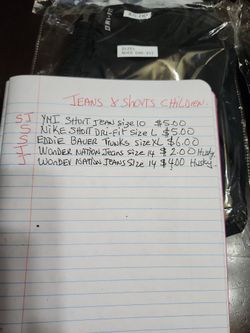 JEANS & SHORTS CHILDREN
SJ YMI SHORT JEAN SIZE 10 $5.00
S NIKE SHORT DRI-FIT SIZE L $5.00
S EDDIE BAUER TRUNKS SIZE XL $6.00
J WONDER NATION JEANS SIZE 14 $2.00 Husky
J WONDER NATION JEANS SIZE 14 $4.00 Husky